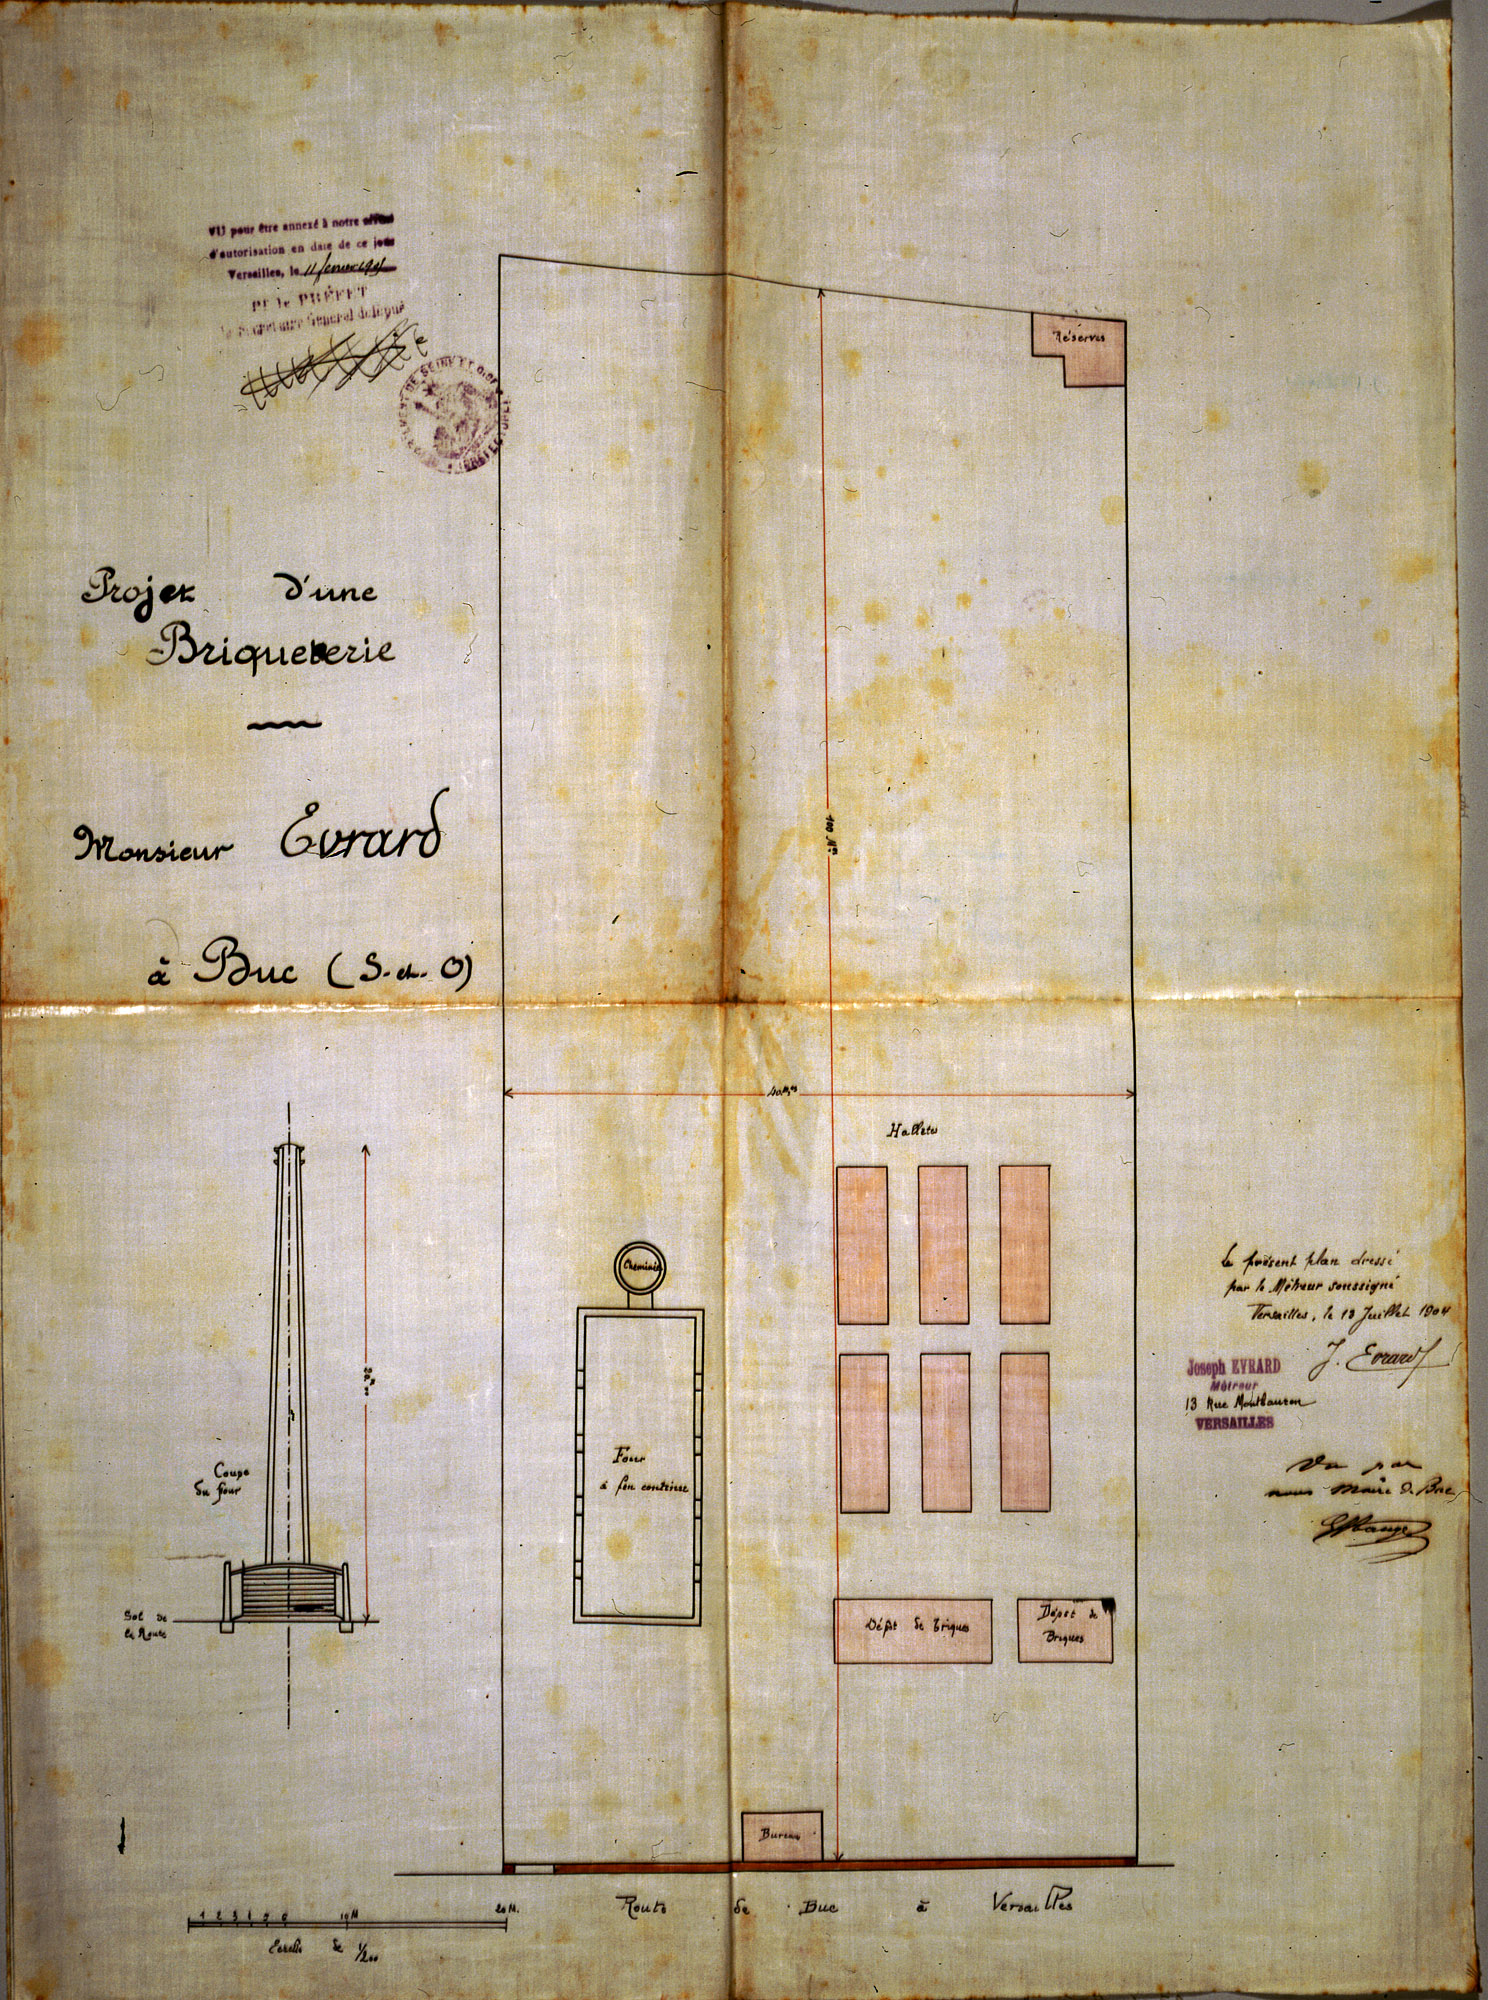 VU pour être annexé à notre arrêté
d'autorisation en date de ce jour
Versailles, le 11 février
Pr le PRÉFET
Le Secrétaire Général délégué
Projet d'une
Briqueterie
Monsieur Evrard
à Buc (S-et-O)
Réserves
100 M.
40M,00
Halletes
Cheminée
Four
à feu continue
Coupe
du four
Sol de
la Route
Dépôt de briques
Dépot de
Briques
Bureau
Route de Buc à Versailles
1 2 3 4 5 6 10M 20M.
Echelle de 1/200
Le présent plan dressé
par le Métreur soussigné
Versailles, le 13 Juillet 1904
J. Evrard
Joseph EVRARD
Métreur
13 Rue Montbauron
VERSAILLES
Vu par
nous Maire de Buc